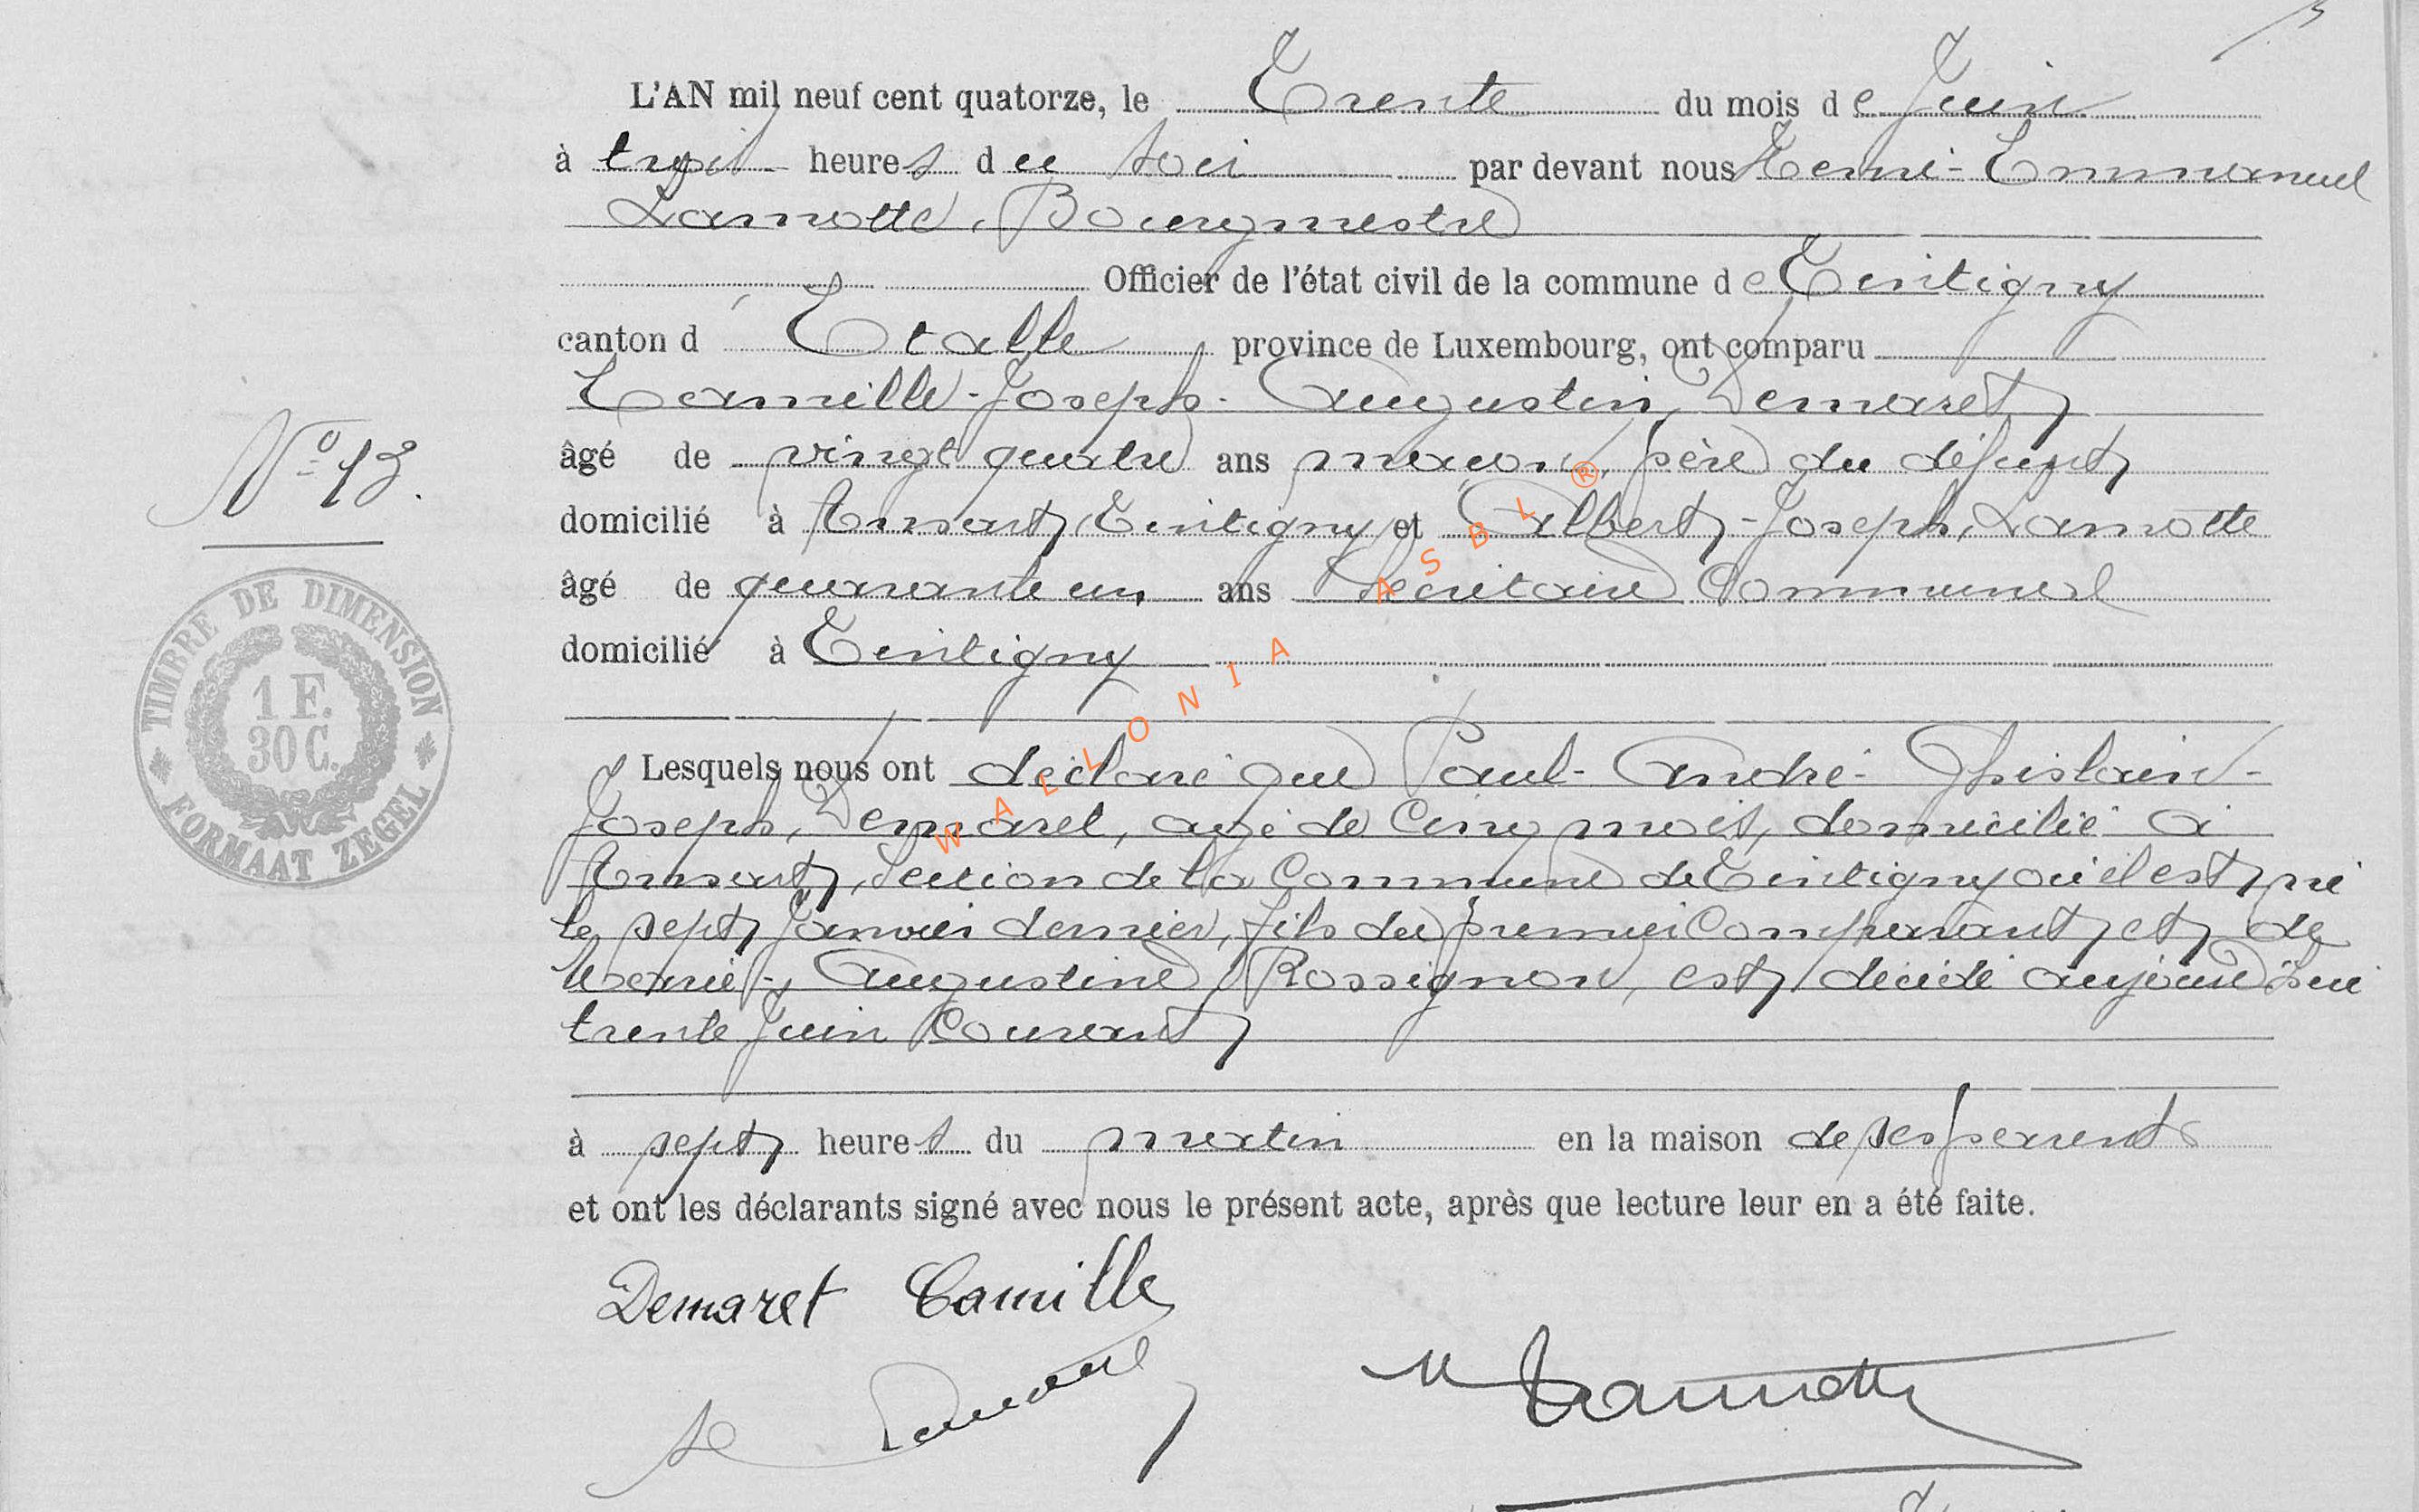 L'AN mil neuf cent quatorze, le Trente du mois de Juin
à trois heures du soir par devant nous Henri-Emmanuel
Lamotte, Bourgmestre
Officier de l'état civil de la commune de Tintigny
canton d'Etalle province de Luxembourg, ont comparu
Camille-Joseph-Augustin, Demaret
âgé de vingt quatre ans maçon, père du défunt
domicilié à Ansart, Tintigny et Albert-Joseph, Lamotte
N° 13.
âgé de quarante un ans Secrétaire Communal
domicilié à Tintigny
TIMBRE DE DIMENSION
1 F.
30 C.
FORMAAT ZEGEL
WALLONIA ASBL ®
Lesquels nous ont déclaré que Paul-André-Ghislain-
Joseph, Demaret, âgé de Cinq mois, domicilié à
Ansart, Section de la Commune de Tintigny où il est né
le sept Janvier dernier, fils du premier Comparant et de
Marie-Augustine, Rossignon, est décédé aujourd'hui
trente Juin Courant
à sept heures du matin en la maison de ses parents
et ont les déclarants signé avec nous le présent acte, après que lecture leur en a été faite.
Demaret Camille
Lamotte